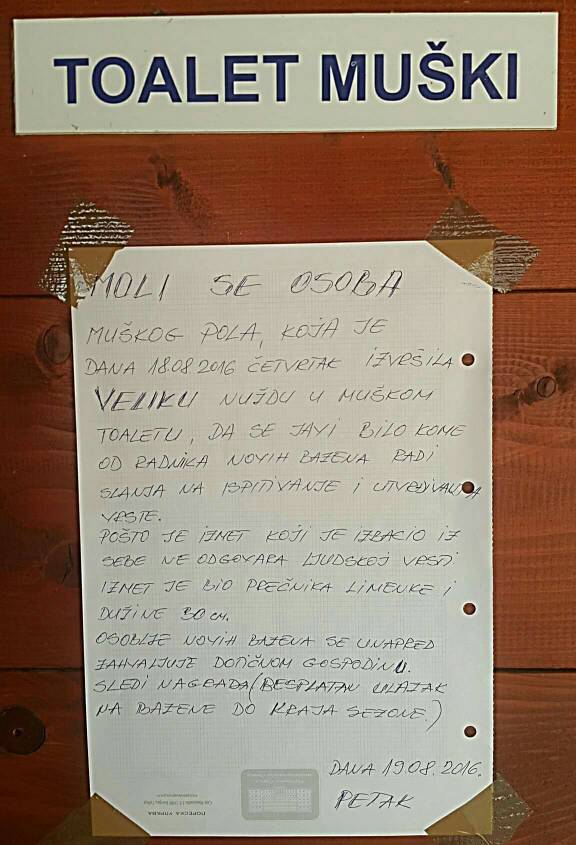 TOALET MUŠKI
MOLI SE OSOBA
MUŠKOG POLA, KOJA JE
DANA 18.08.2016 ČETVRTAK IZVRŠILA
VELIKU NUŽDU U MUŠKOM
TOALETU, DA SE JAVI BILO KOME
OD RADNIKA NOVIH BAZENA RADI
SLANJA NA ISPITIVANJE I UTVRĐIVANJA
VRSTE.
POŠTO JE IZMET KOJI JE IZBACIO IZ
SEBE NE ODGOVARA LJUDSKOJ VRSTI
IZMET JE BIO PREČNIKA LIMENKE I
DUŽINE 30 cm.
OSOBLJE NOVIH BAZENA SE UNAPRED
ZAHVALJUJE DOTIČNOM GOSPODINU.
SLEDI NAGRADA (BESPLATAN ULAZAK
NA BAZENE DO KRAJA SEZONE.)
DANA 19.08.2016.
PETAK
ПОРЕСКА УПРАВА